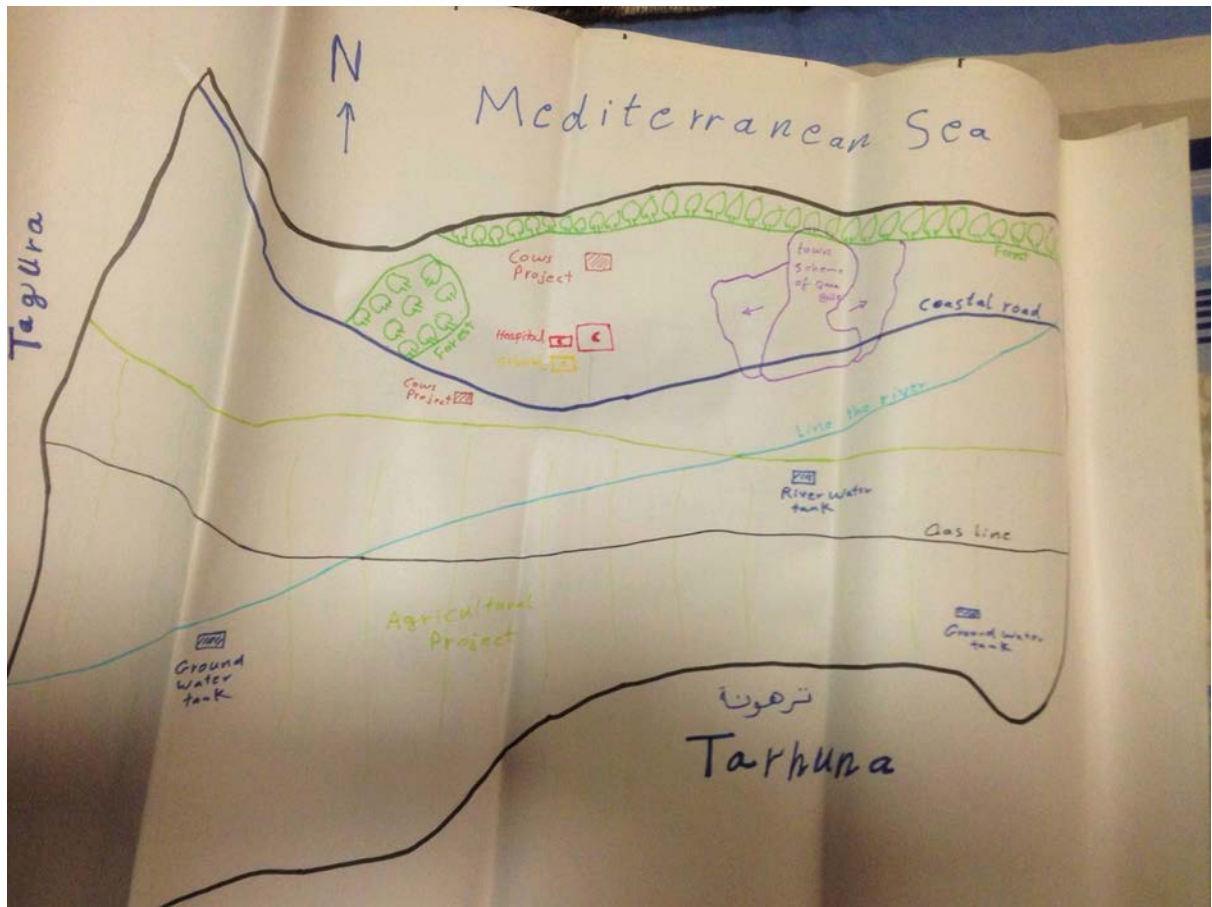 N
Mediterranean Sea
Tagura
Cows
Project
town
scheme
of
Forest
Coastal road
Hospital
Forest
Cows
Project
Line the river
River water
tank
Gas Line
Agricultural
Project
Ground water
tank
Ground
water
tank
ترهونة
Tarhuna